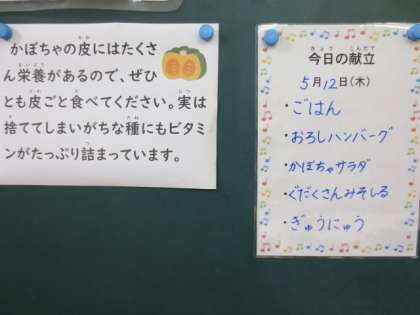 かぼちゃの皮にはたくさ
ん栄養があるので、ぜひ
とも皮ごと食べてください。実は
捨ててしまいがちな種にもビタミ
ンがたっぷり詰まっています。
今日の献立
5月12日(木)
・ごはん
・おろしハンバーグ
・かぼちゃサラダ
・ぐだくさんみそしる
・ぎゅうにゅう